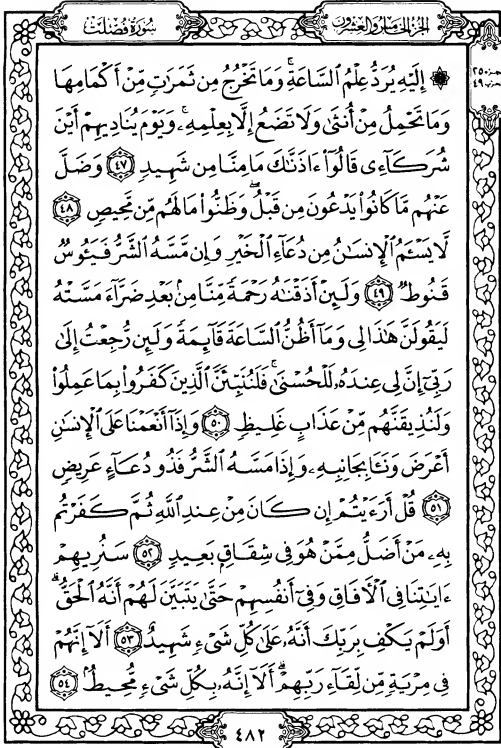 سُورَةُ فُصِّلَتْ
الجُزْءُ الخَامِسُ وَالعِشْرُونَ
۞ إِلَيْهِ يُرَدُّ عِلْمُ السَّاعَةِ ۚ وَمَا تَخْرُجُ مِن ثَمَرَٰتٍ مِّنْ أَكْمَامِهَا
وَمَا تَحْمِلُ مِنْ أُنثَىٰ وَلَا تَضَعُ إِلَّا بِعِلْمِهِۦ ۚ وَيَوْمَ يُنَادِيهِمْ أَيْنَ
شُرَكَآءِى قَالُوٓا۟ ءَاذَنَّٰكَ مَا مِنَّا مِن شَهِيدٍ ٤٧ وَضَلَّ
عَنْهُم مَّا كَانُوا۟ يَدْعُونَ مِن قَبْلُ ۖ وَظَنُّوا۟ مَا لَهُم مِّن مَّحِيصٍ ٤٨
لَّا يَسْـَٔمُ الْإِنسَٰنُ مِن دُعَآءِ الْخَيْرِ وَإِن مَّسَّهُ الشَّرُّ فَيَـُٔوسٌ
قَنُوطٌ ٤٩ وَلَئِنْ أَذَقْنَٰهُ رَحْمَةً مِّنَّا مِنۢ بَعْدِ ضَرَّآءَ مَسَّتْهُ
لَيَقُولَنَّ هَٰذَا لِى وَمَآ أَظُنُّ السَّاعَةَ قَآئِمَةً وَلَئِن رُّجِعْتُ إِلَىٰ
رَبِّىٓ إِنَّ لِى عِندَهُۥ لَلْحُسْنَىٰ ۚ فَلَنُنَبِّئَنَّ الَّذِينَ كَفَرُوا۟ بِمَا عَمِلُوا۟
وَلَنُذِيقَنَّهُم مِّنْ عَذَابٍ غَلِيظٍ ٥٠ وَإِذَآ أَنْعَمْنَا عَلَى الْإِنسَٰنِ
أَعْرَضَ وَنَـَٔا بِجَانِبِهِۦ وَإِذَا مَسَّهُ الشَّرُّ فَذُو دُعَآءٍ عَرِيضٍ
٥١ قُلْ أَرَءَيْتُمْ إِن كَانَ مِنْ عِندِ اللَّهِ ثُمَّ كَفَرْتُم
بِهِۦ مَنْ أَضَلُّ مِمَّنْ هُوَ فِى شِقَاقٍۭ بَعِيدٍ ٥٢ سَنُرِيهِمْ
ءَايَٰتِنَا فِى الْءَافَاقِ وَفِىٓ أَنفُسِهِمْ حَتَّىٰ يَتَبَيَّنَ لَهُمْ أَنَّهُ الْحَقُّ ۗ
أَوَلَمْ يَكْفِ بِرَبِّكَ أَنَّهُۥ عَلَىٰ كُلِّ شَىْءٍ شَهِيدٌ ٥٣ أَلَآ إِنَّهُمْ
فِى مِرْيَةٍ مِّن لِّقَآءِ رَبِّهِمْ ۗ أَلَآ إِنَّهُۥ بِكُلِّ شَىْءٍ مُّحِيطٌۢ ٥٤
جزء ٢٥
حزب ٤٩
٤٨٢